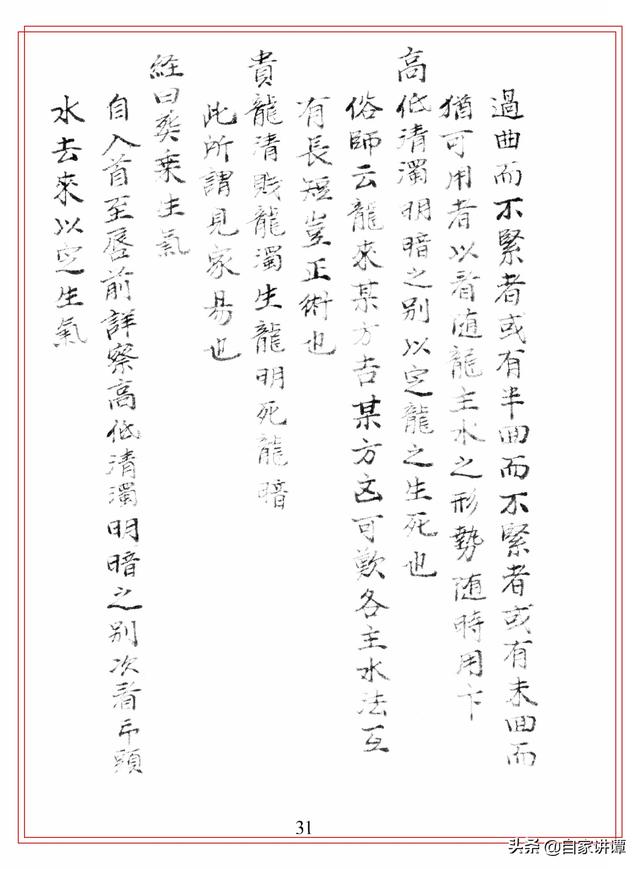 過曲而不緊者或有半回而不緊者或有未回而
猶可用者以看随龍主水之形勢随時用卞
高低清濁明暗之别以定龍之生死也
俗師云龍來某方吉某方凶可歎各主水法互
有長短豈正術也
貴龍清賎龍濁生龍明死龍暗
此所謂見家易也
経曰葬乗生氣
自入首至唇前詳察高低清濁明暗之别次看
水去來以定生氣
31
头条 @自家讲谭